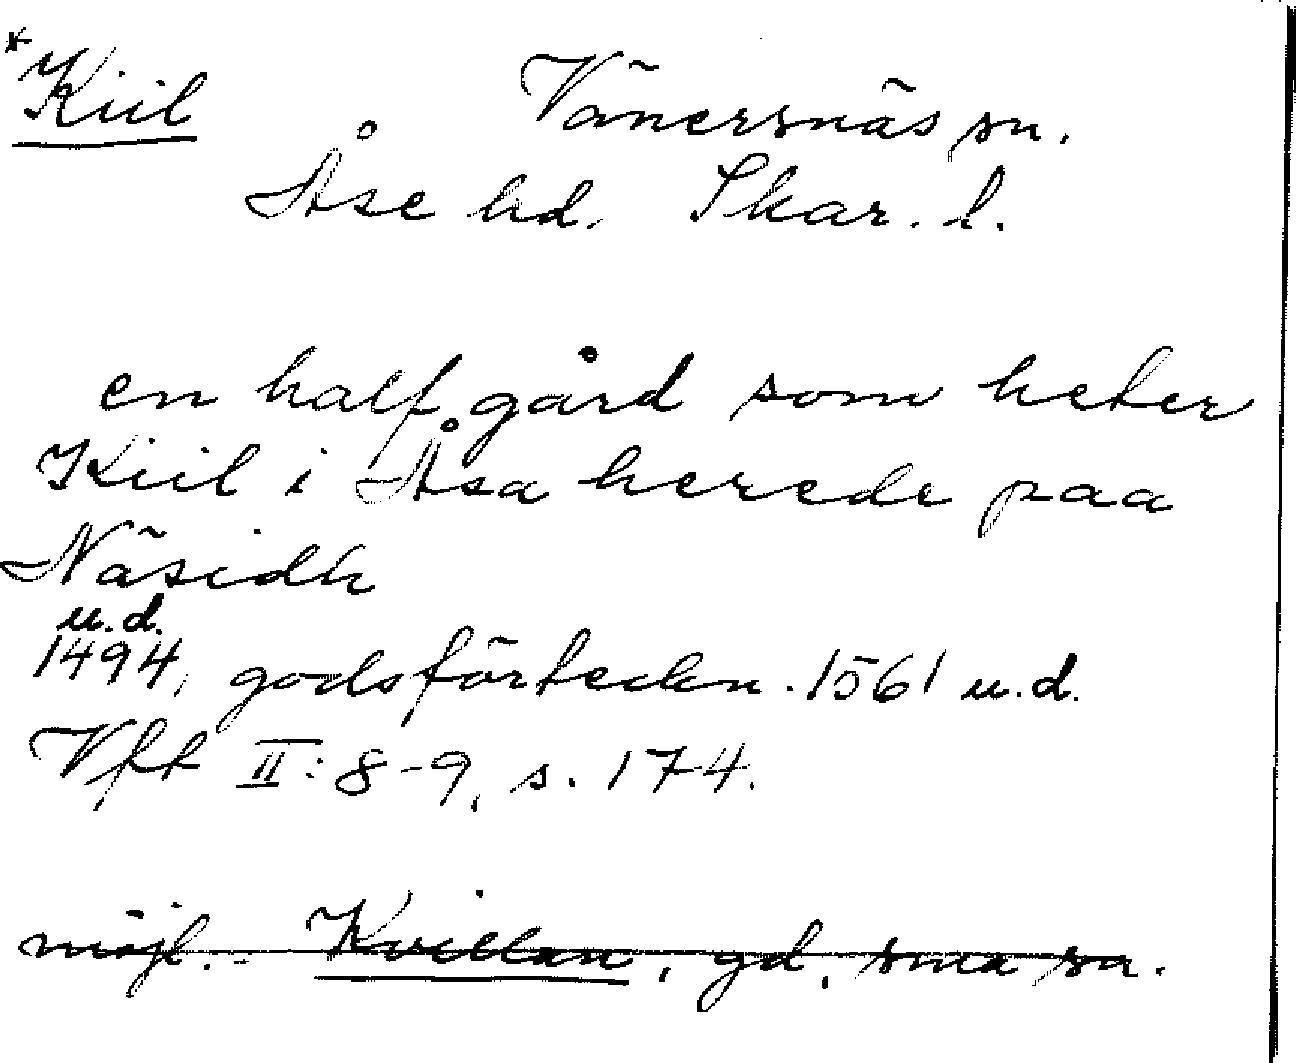 *Kiil Vänersnäs sn.
Åse hd. Skar. l.
en half gård som heter
Kiil i Åsa herede paa
Näsidh
u.d.
1494, godsförteckn. 1561 u.d.
Vft II: 8-9, s. 174.
möjl. = Kvillan, gd, sma sn.